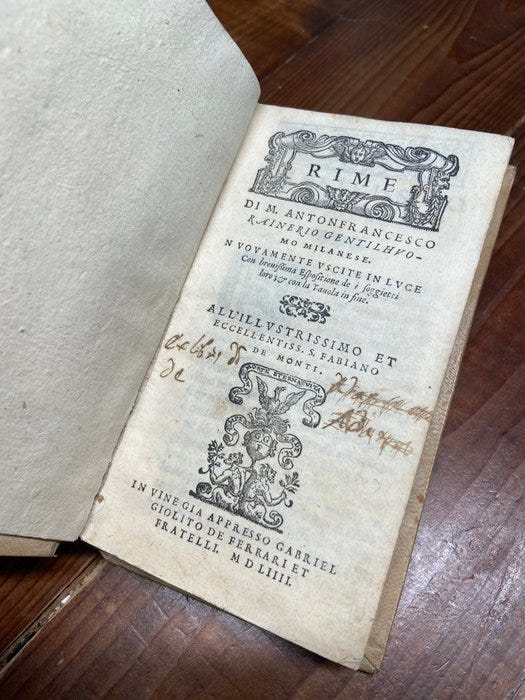 RIME
DI M. ANTONFRANCESCO
RAINERIO GENTILHVO-
MO MILANESE.
NVOVAMENTE VSCITE IN LVCE
Con breuissima Espositione de i soggietti
loro: & con la Tauola in fine.
ALL'ILLVSTRISSIMO ET
ECCELLENTISS. S. FABIANO
DE MONTI.
IN VINEGIA APPRESSO GABRIEL
GIOLITO DE FERRARI ET
FRATELLI. MDLIIII.